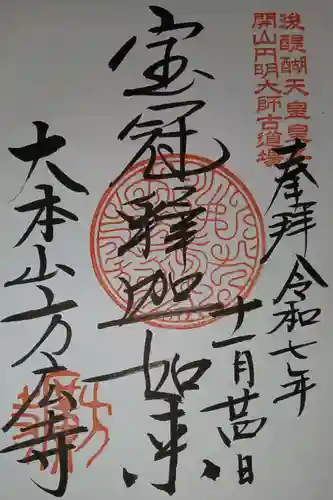 後醍醐天皇皇子
開山円明大師古道場
奉拝 令和七年
十一月廿四日
宝冠釋迦如来
大本山方広寺